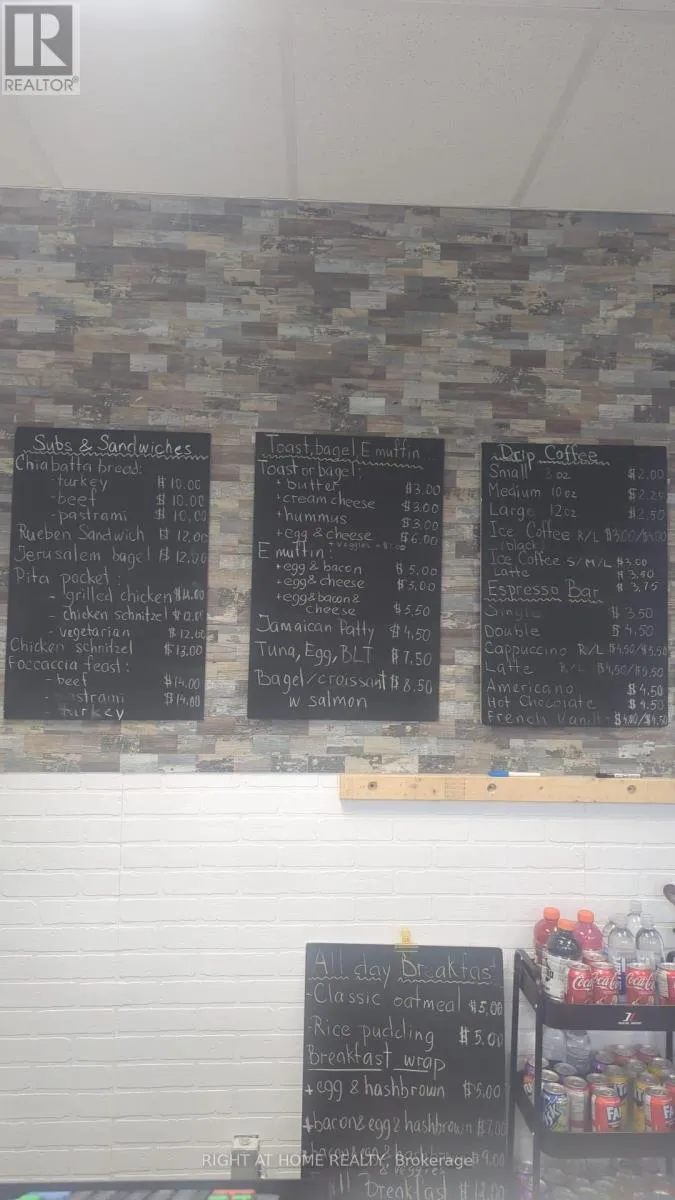 R
REALTOR®
Subs & Sandwiches
Chiabatta bread:
-turkey $10.00
-beef $10.00
-pastrami $10.00
Rueben Sandwich $12.00
Jerusalem bagel $12.00
Pita pocket:
- grilled chicken $14.00
- chicken schnitzel
- vegetarian $12.00
Chicken schnitzel $13.00
Foccaccia feast:
- beef $14.00
- pastrami $14.00
- turkey
Toast, bagel, E muffin
Toast or bagel:
+ butter $3.00
+ cream cheese $3.00
+ hummus $3.00
+ egg & cheese $6.00
+ veggies + $1.00
E muffin:
+ egg & bacon $5.00
+ egg & cheese $5.00
+ egg & bacon &
cheese $5.50
Jamaican Patty $4.50
Tuna, Egg, BLT $7.50
Bagel/croissant $8.50
w salmon
Drip Coffee
Small oz $2.00
Medium 10oz $2.25
Large 12oz $2.50
Ice Coffee R/L $3.00/$4.00
(black)
Ice Coffee S/M/L $3.00
Latte $3.50
$3.75
Espresso Bar
Single $3.50
Double $4.50
Cappuccino R/L $4.50/$5.50
Latte R/L $4.50/$5.50
Americano $4.50
Hot Chocolate $4.50
French Vanill $4.00/$4.50
All day Breakfas
-Classic oatmeal $5.00
-Rice pudding $5.00
Breakfast wrap
+ egg & hashbrown $5.00
+ bacon & egg & hashbrown $7.00
+ bacon & egg & hashbrown $9.00
& veggies
Full Breakfast $12.00
Coca-Cola
RIGHT AT HOME REALTY, Brokerage